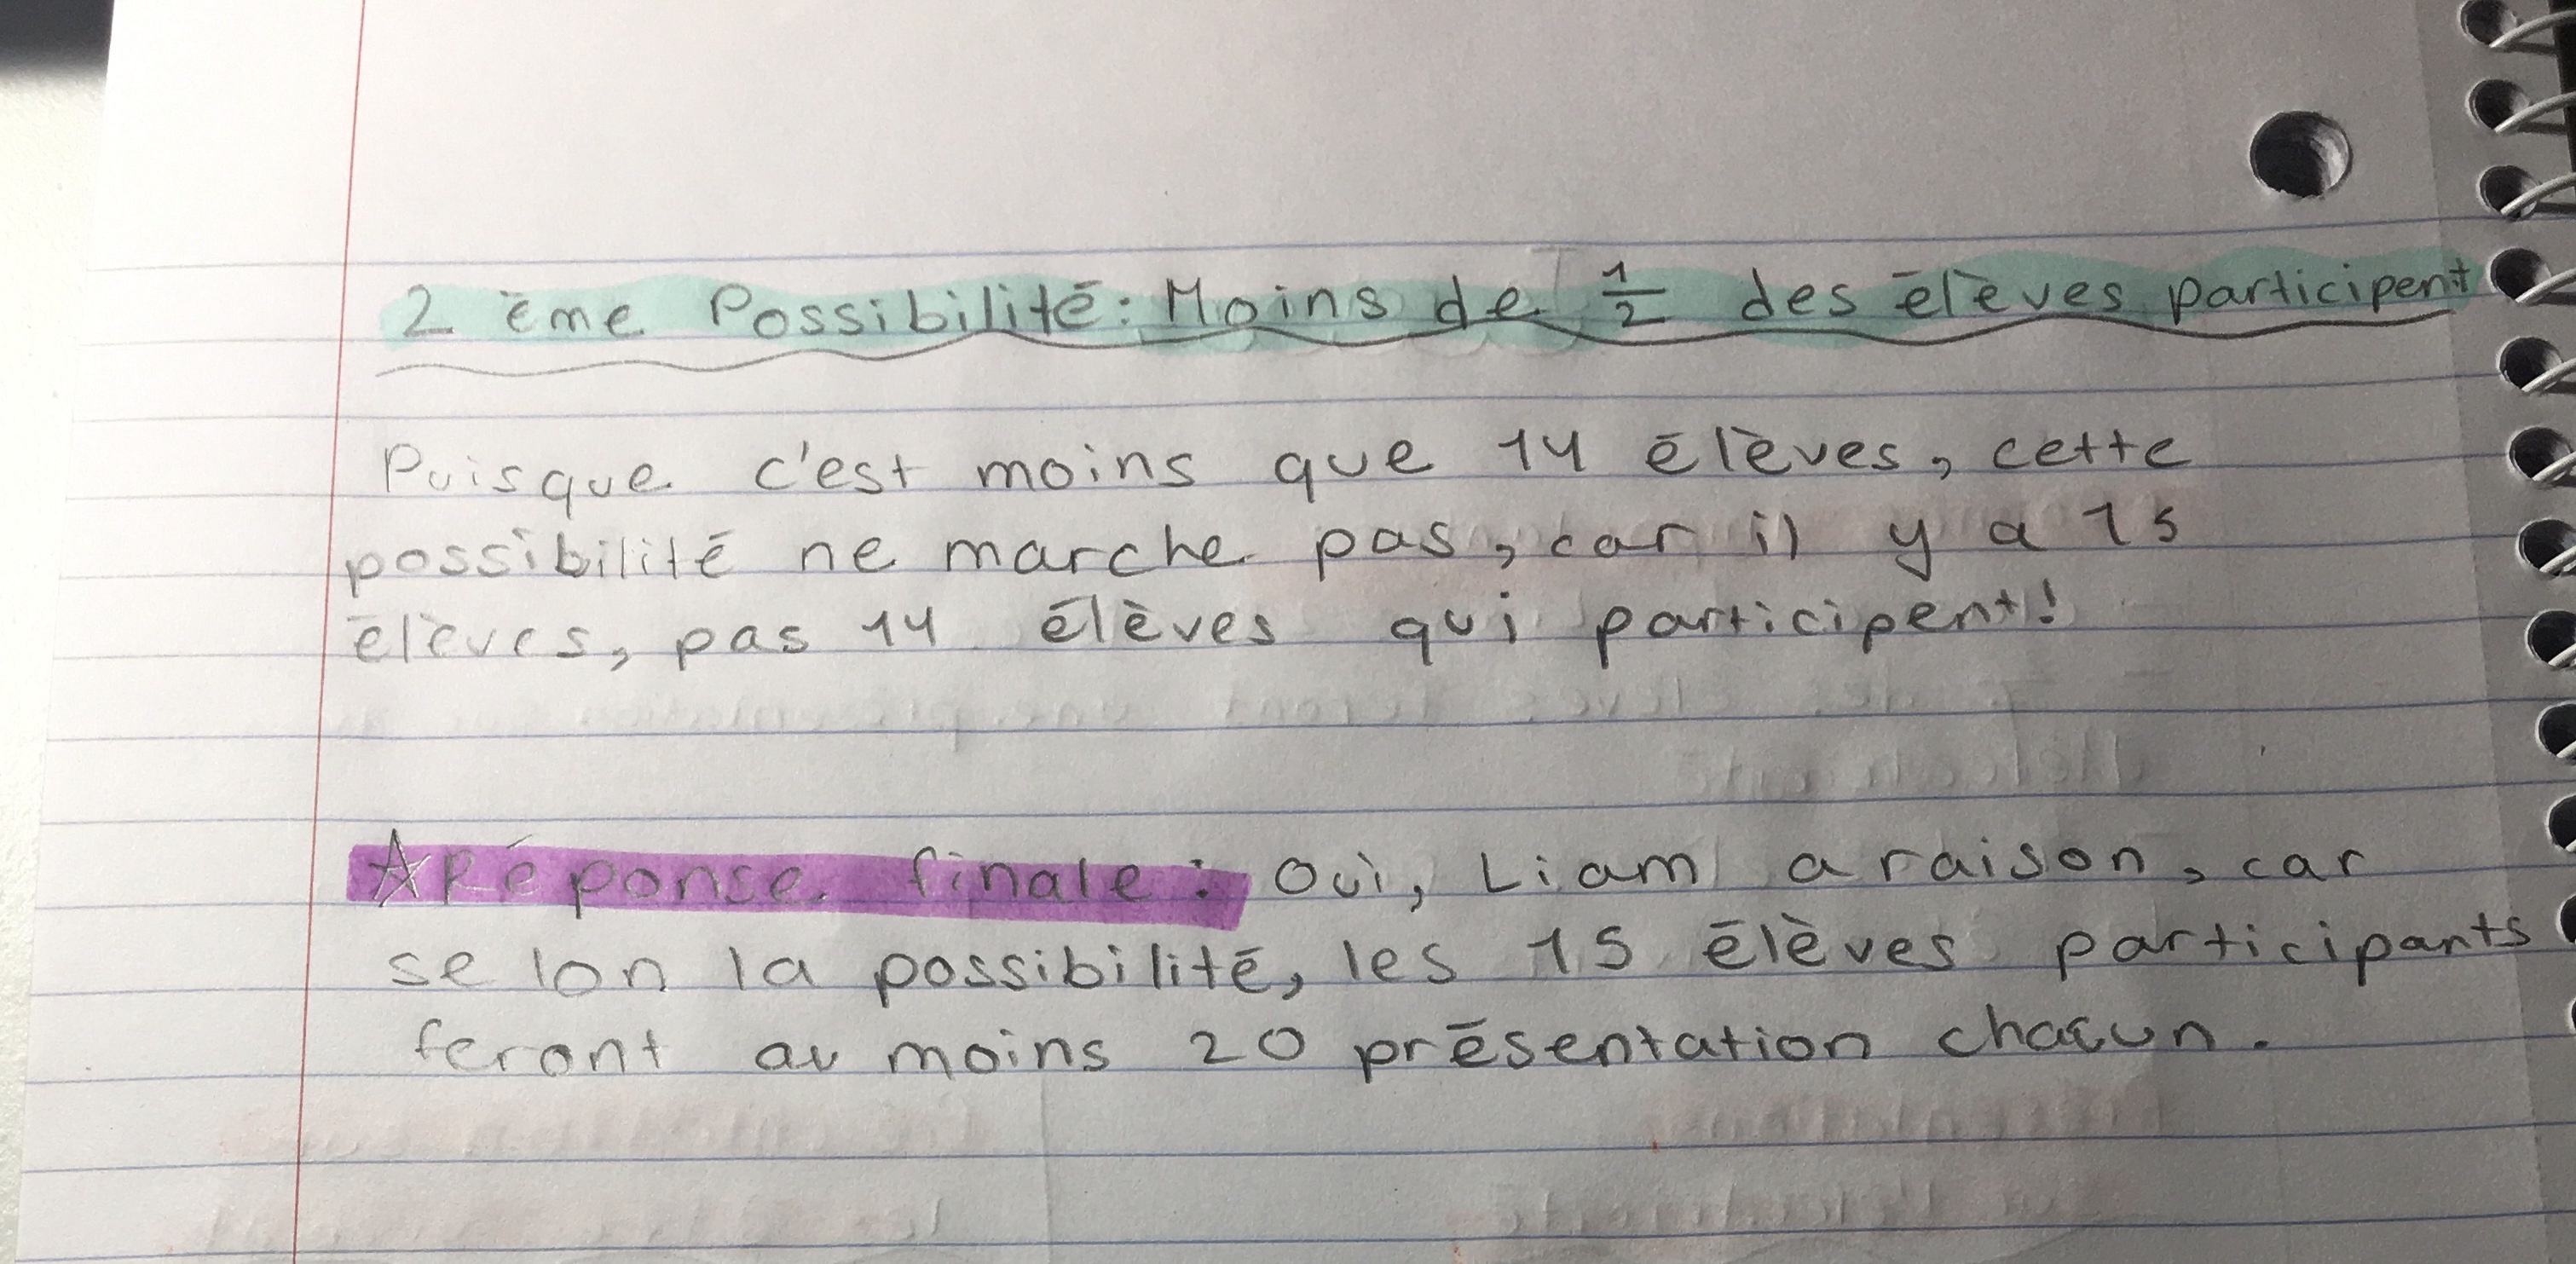 2 ème Possibilité: Moins de 1/2 des élèves participent
Puisque c'est moins que 14 élèves, cette
possibilité ne marche pas, car il y a 15
élèves, pas 14 élèves qui participent!
☆Réponse finale: Oui, Liam a raison, car
selon la possibilité, les 15 élèves participants
feront au moins 20 présentation chacun.